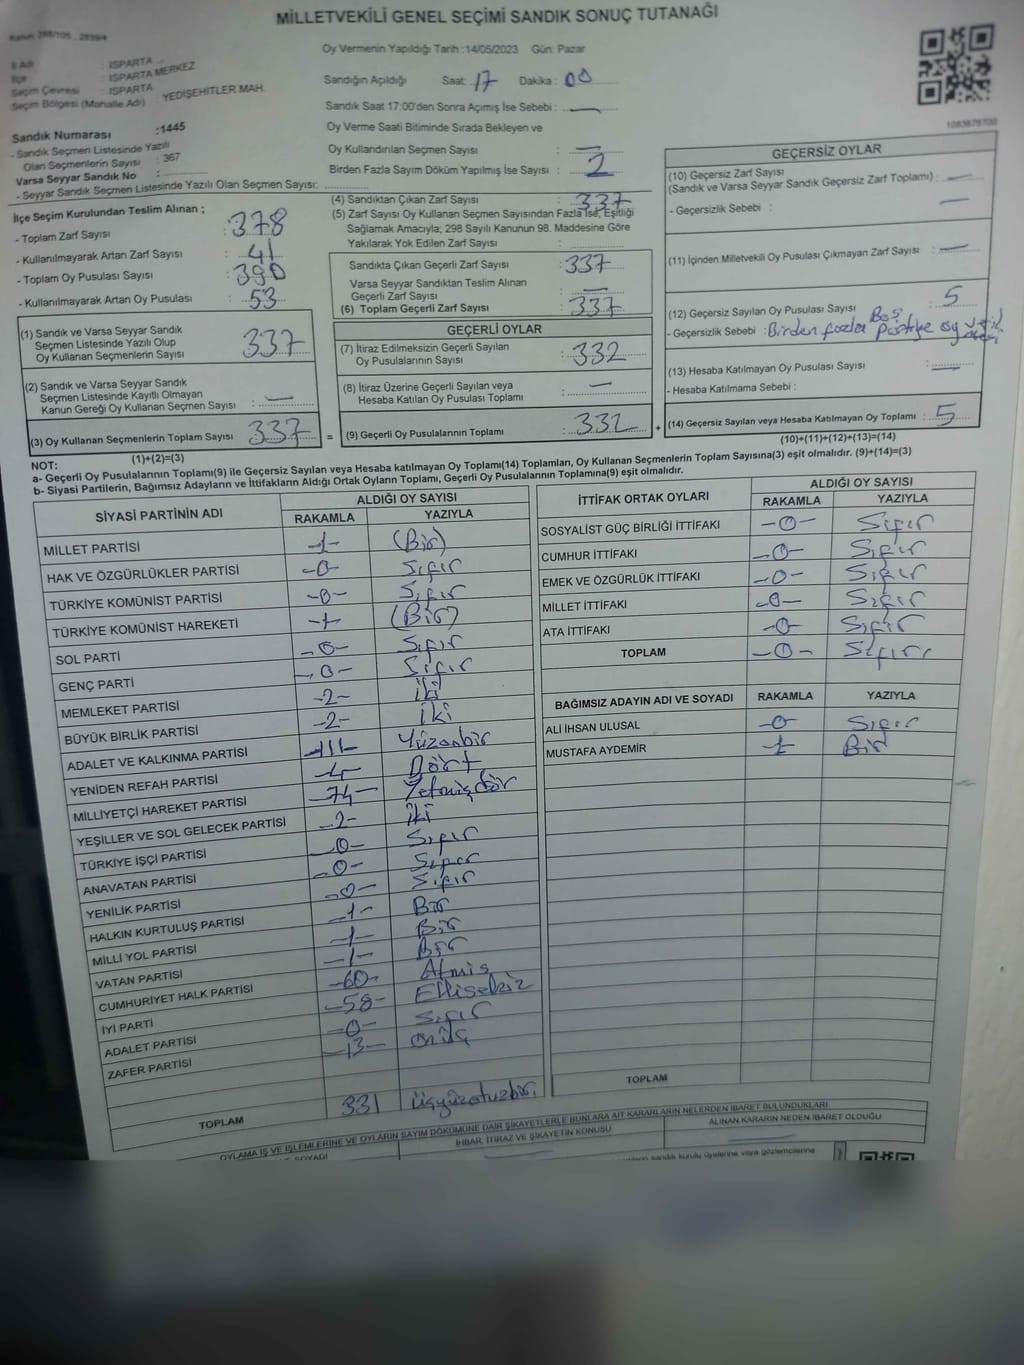 MİLLETVEKİLİ GENEL SEÇİMİ SANDIK SONUÇ TUTANAĞI
Oy Vermenin Yapıldığı Tarih :14/05/2023 Gün: Pazar
İl Adı : ISPARTA
İlçe : ISPARTA MERKEZ
Seçim Çevresi : ISPARTA
Seçim Bölgesi (Mahalle Adı) : YEDİŞEHİTLER MAH.
Sandık Numarası :1445
- Sandık Seçmen Listesinde Yazılı
Olan Seçmenlerin Sayısı : 367
Varsa Seyyar Sandık No :
- Seyyar Sandık Seçmen Listesinde Yazılı Olan Seçmen Sayısı:
Sandığın Açıldığı Saat: 17 Dakika: 00
Sandık Saat 17:00'den Sonra Açımış İse Sebebi : —
Oy Verme Saati Bitiminde Sırada Bekleyen ve
Oy Kullandırılan Seçmen Sayısı : —
Birden Fazla Sayım Döküm Yapılmış İse Sayısı : 2
1083878700
İlçe Seçim Kurulundan Teslim Alınan ;
- Toplam Zarf Sayısı : 378
- Kullanılmayarak Artan Zarf Sayısı : 41
- Toplam Oy Pusulası Sayısı : 390
- Kullanılmayarak Artan Oy Pusulası : 53
(1) Sandık ve Varsa Seyyar Sandık
Seçmen Listesinde Yazılı Olup
Oy Kullanan Seçmenlerin Sayısı : 337
(2) Sandık ve Varsa Seyyar Sandık
Seçmen Listesinde Kayıtlı Olmayan
Kanun Gereği Oy Kullanan Seçmen Sayısı : —
(3) Oy Kullanan Seçmenlerin Toplam Sayısı : 337
(1)+(2)=(3)
(4) Sandıktan Çıkan Zarf Sayısı : 337
(5) Zarf Sayısı Oy Kullanan Seçmen Sayısından Fazla İse, Eşitliği
Sağlamak Amacıyla; 298 Sayılı Kanunun 98. Maddesine Göre
Yakılarak Yok Edilen Zarf Sayısı :
Sandıkta Çıkan Geçerli Zarf Sayısı : 337
Varsa Seyyar Sandıktan Teslim Alınan
Geçerli Zarf Sayısı : —
(6) Toplam Geçerli Zarf Sayısı : 337
GEÇERLİ OYLAR
(7) İtiraz Edilmeksizin Geçerli Sayılan
Oy Pusulalarının Sayısı : 332
(8) İtiraz Üzerine Geçerli Sayılan veya
Hesaba Katılan Oy Pusulası Toplamı : —
= (9) Geçerli Oy Pusulalarının Toplamı : 332
GEÇERSİZ OYLAR
(10) Geçersiz Zarf Sayısı
(Sandık ve Varsa Seyyar Sandık Geçersiz Zarf Toplamı) : —
- Geçersizlik Sebebi : —
(11) İçinden Milletvekili Oy Pusulası Çıkmayan Zarf Sayısı : —
(12) Geçersiz Sayılan Oy Pusulası Sayısı : 5
- Geçersizlik Sebebi : Boş Birden fazla Partiye oy
(13) Hesaba Katılmayan Oy Pusulası Sayısı : —
- Hesaba Katılmama Sebebi :
+ (14) Geçersiz Sayılan veya Hesaba Katılmayan Oy Toplamı : 5
(10)+(11)+(12)+(13)=(14)
NOT:
a- Geçerli Oy Pusulalarının Toplamı(9) ile Geçersiz Sayılan veya Hesaba katılmayan Oy Toplamı(14) Toplamları, Oy Kullanan Seçmenlerin Toplam Sayısına(3) eşit olmalıdır. (9)+(14)=(3)
b- Siyasi Partilerin, Bağımsız Adayların ve İttifakların Aldığı Ortak Oyların Toplamı, Geçerli Oy Pusulalarının Toplamına(9) eşit olmalıdır.
SİYASİ PARTİNİN ADI ALDIĞI OY SAYISI
RAKAMLA YAZIYLA
MİLLET PARTİSİ -1- (Bir)
HAK VE ÖZGÜRLÜKLER PARTİSİ -0- Sıfır
TÜRKİYE KOMÜNİST PARTİSİ -0- Sıfır
TÜRKİYE KOMÜNİST HAREKETİ -1- (Bir)
SOL PARTİ -0- Sıfır
GENÇ PARTİ -0- Sıfır
MEMLEKET PARTİSİ -2- İki
BÜYÜK BİRLİK PARTİSİ -2- İki
ADALET VE KALKINMA PARTİSİ -111- Yüzonbir
YENİDEN REFAH PARTİSİ -4- Dört
MİLLİYETÇİ HAREKET PARTİSİ -74- Yetmişdör
YEŞİLLER VE SOL GELECEK PARTİSİ -2- İki
TÜRKİYE İŞÇİ PARTİSİ -0- Sıfır
ANAVATAN PARTİSİ -0- Sıfır
YENİLİK PARTİSİ -0- Sıfır
HALKIN KURTULUŞ PARTİSİ -1- Bir
MİLLİ YOL PARTİSİ -1- Bir
VATAN PARTİSİ -1- Bir
CUMHURİYET HALK PARTİSİ -60- Atmış
İYİ PARTİ -58- Ellisekiz
ADALET PARTİSİ -0- Sıfır
ZAFER PARTİSİ -13- Onüç
TOPLAM 331 üçyüzotuzbir
İTTİFAK ORTAK OYLARI ALDIĞI OY SAYISI
RAKAMLA YAZIYLA
SOSYALİST GÜÇ BİRLİĞİ İTTİFAKI -0- Sıfır
CUMHUR İTTİFAKI -0- Sıfır
EMEK VE ÖZGÜRLÜK İTTİFAKI -0- Sıfır
MİLLET İTTİFAKI -0- Sıfır
ATA İTTİFAKI -0- Sıfır
TOPLAM -0- Sıfır
BAĞIMSIZ ADAYIN ADI VE SOYADI RAKAMLA YAZIYLA
ALİ İHSAN ULUSAL -0- Sıfır
MUSTAFA AYDEMİR -1- Bir
TOPLAM
OYLAMA İŞ VE İŞLEMLERİNE VE OYLARIN SAYIM DÖKÜMÜNE DAİR ŞİKAYETLERLE BUNLARA AİT KARARLARIN NELERDEN İBARET BULUNDUKLARI
İHBAR, İTİRAZ VE ŞİKAYETİN KONUSU
ALINAN KARARIN NEDEN İBARET OLDUĞU